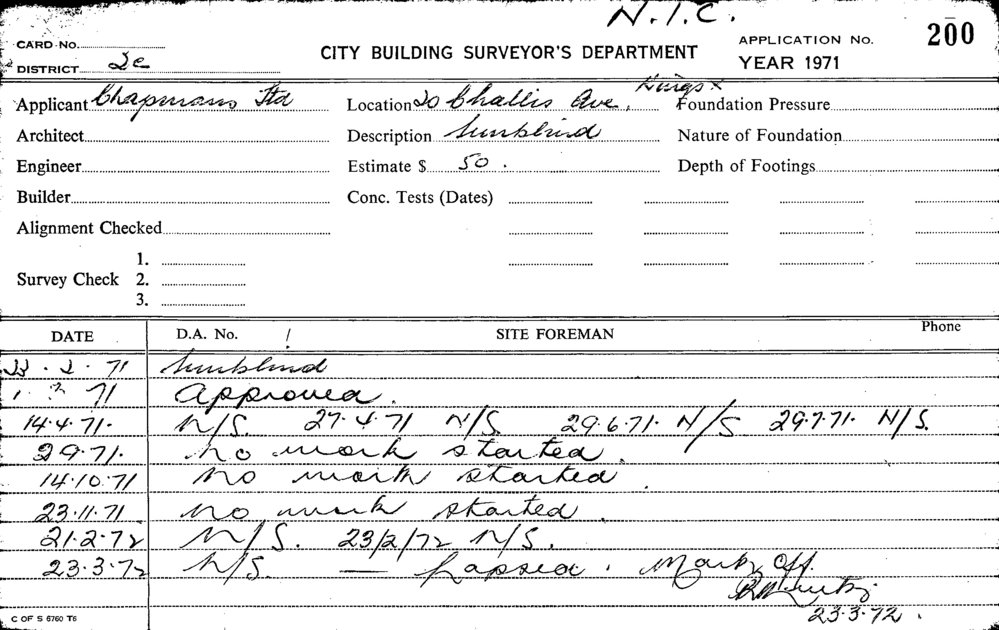 N.I.C.
CARD NO. CITY BUILDING SURVEYOR'S DEPARTMENT APPLICATION No. 200
DISTRICT 2e YEAR 1971
Applicant Chapmans Ltd Location 20 Challis Ave, Kings X Foundation Pressure
Architect Description Sunblind Nature of Foundation
Engineer Estimate $ 50. Depth of Footings
Builder Conc. Tests (Dates)
Alignment Checked
1.
Survey Check 2.
3.
DATE D.A. No. / SITE FOREMAN Phone
23.2.71 Sunblind
1.3.71 Approved.
14.4.71. N/S. 27.4.71 N/S. 29.6.71. N/S 29.7.71. N/S.
2.9.71. No work started.
14.10.71 No work started.
23.11.71 No work started.
21.2.72 N/S. 23/2/72 N/S.
23.3.72 N/S. — Lapsed. Mark Off.
23.3.72.
C OF S 6760 T6